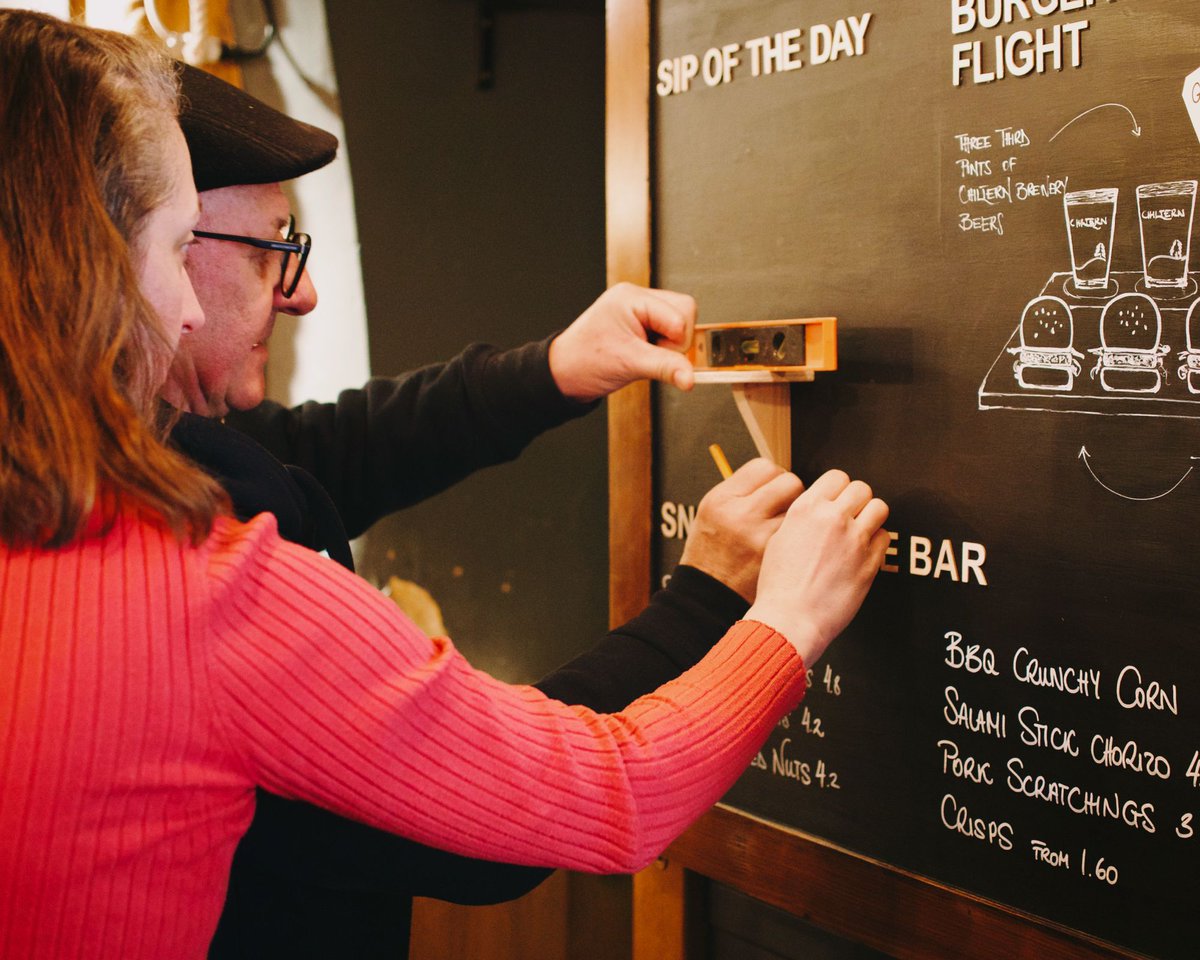 SIP OF THE DAY
BURGER
FLIGHT
THREE THIRD
PINTS OF
CHILTERN BREWERY
BEERS
CHILTERN
CHILTERN
SN
E BAR
S 4.8
S 4.2
ED NUTS 4.2
BBQ CRUNCHY CORN
SALAMI STICK CHORIZO 4
PORK SCRATCHINGS 3
CRISPS FROM 1.60